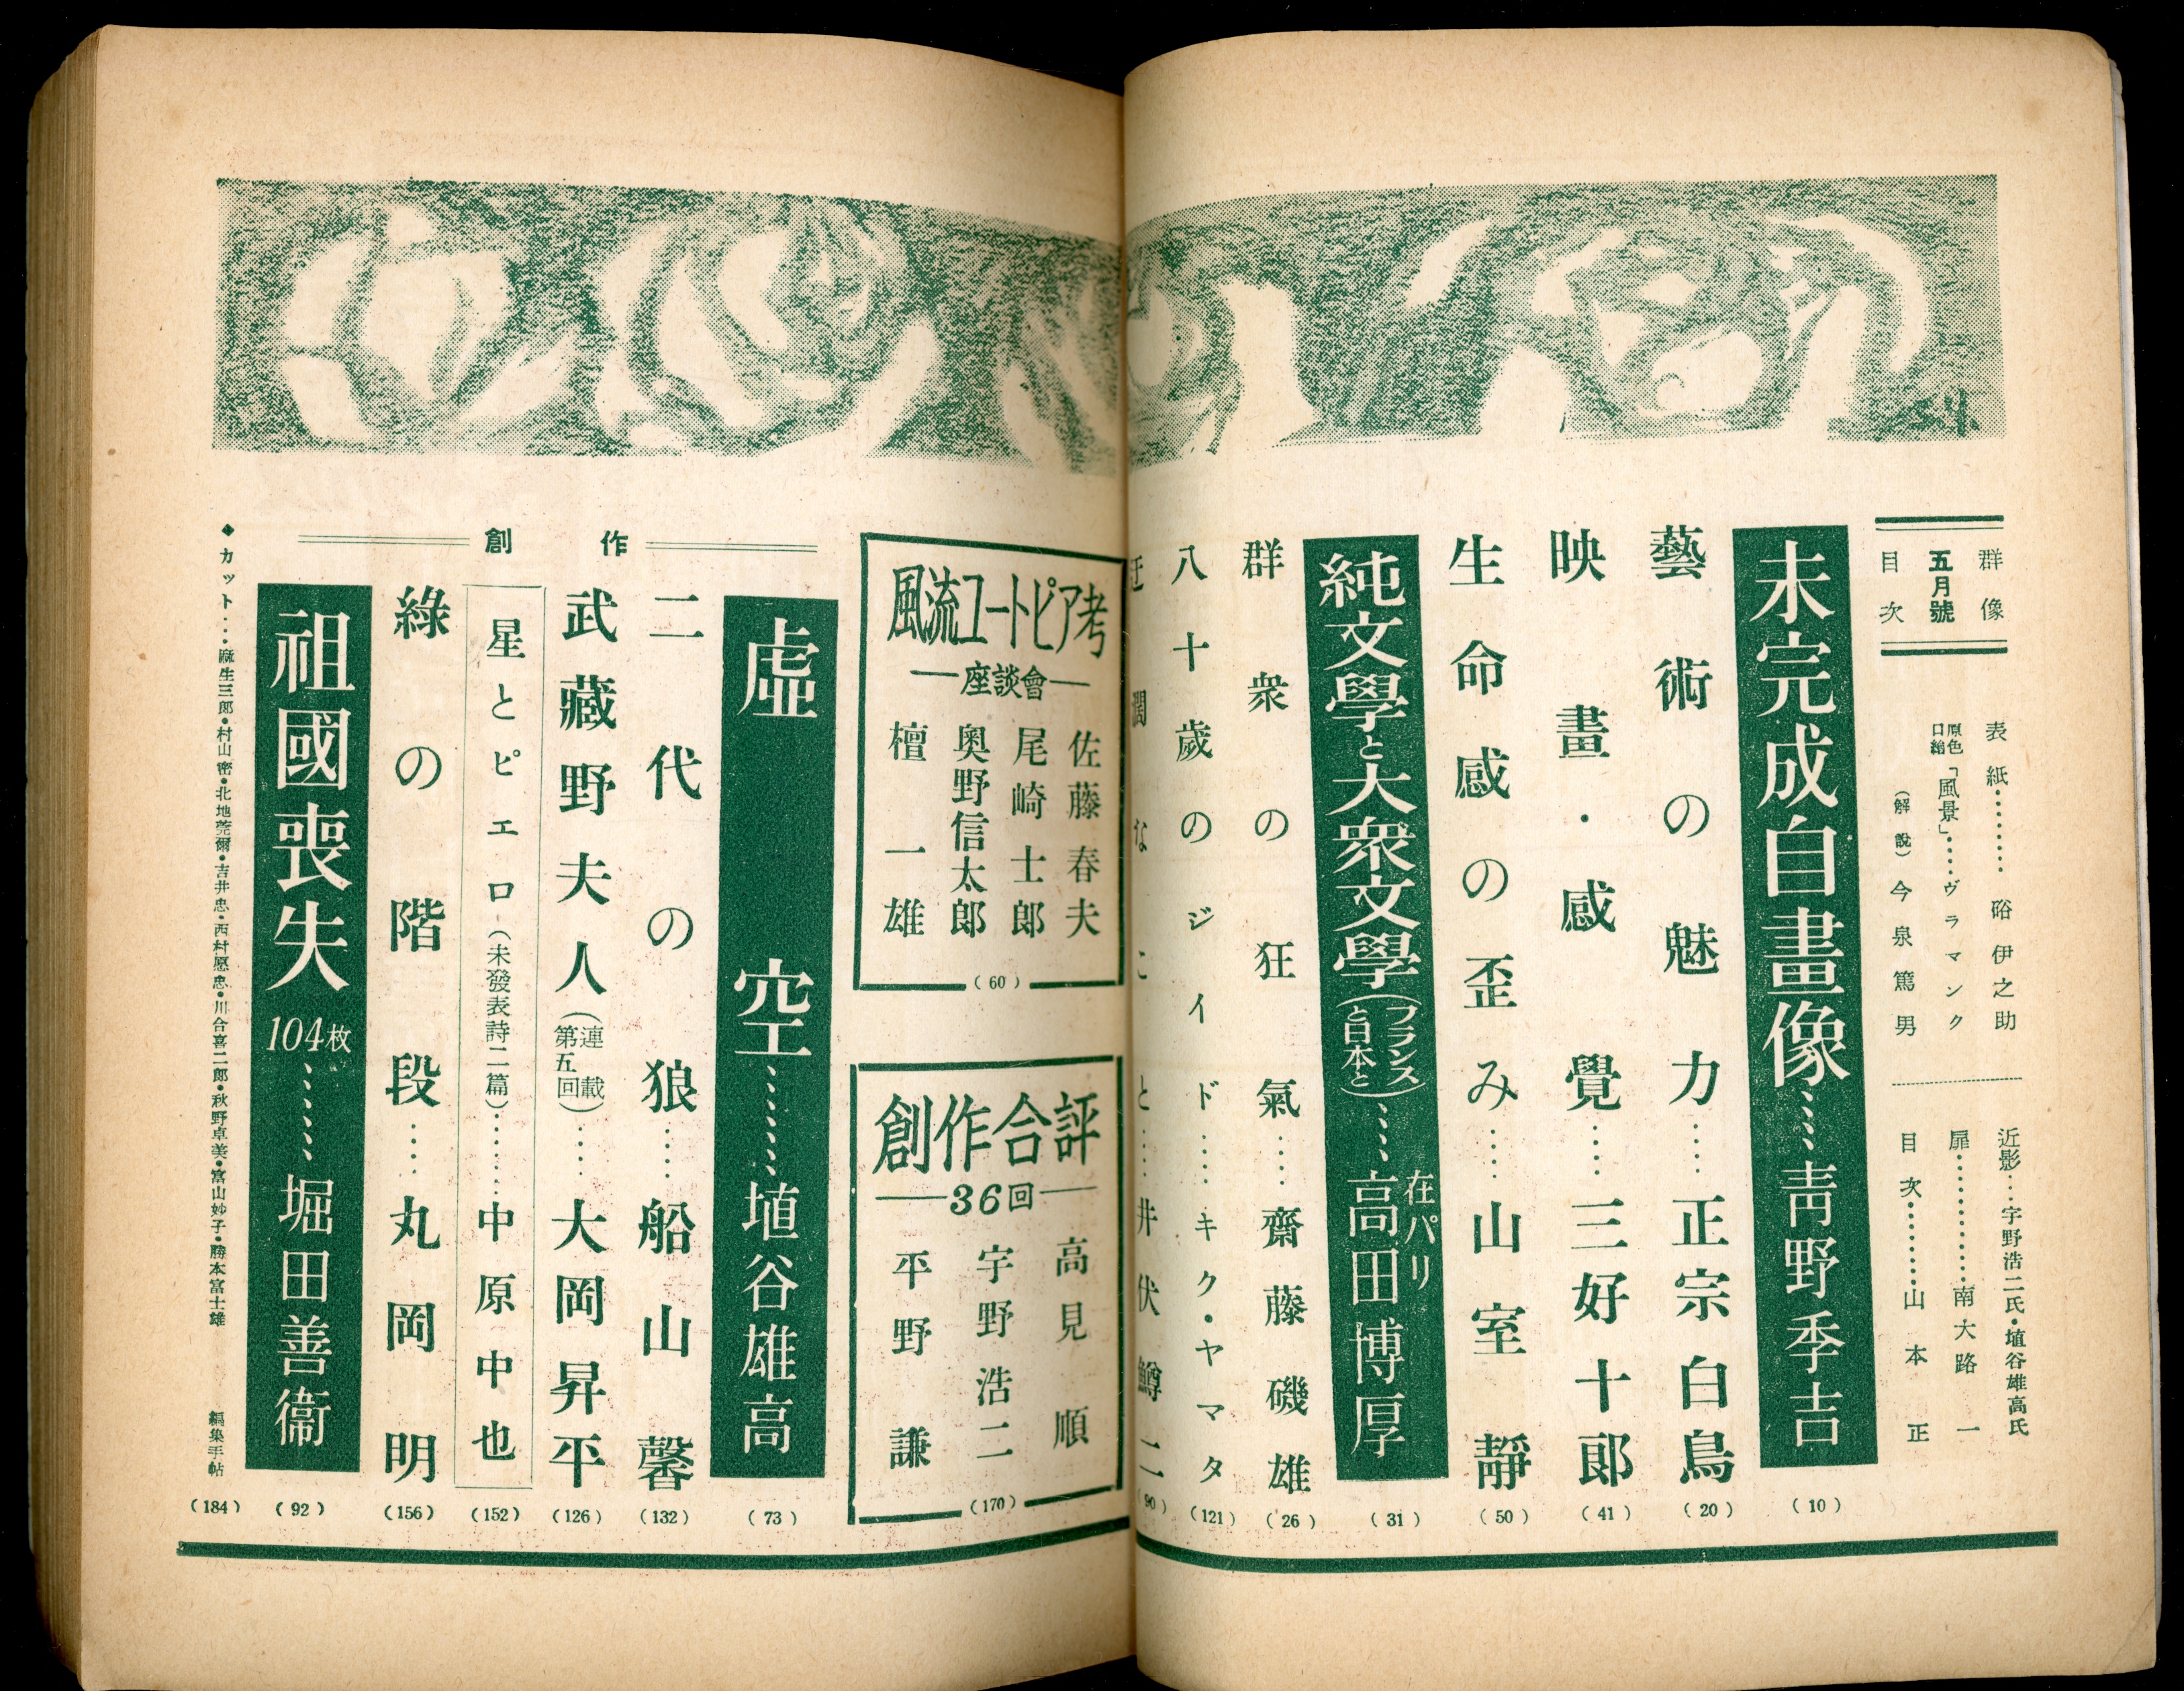 群像
五月號
目次
表紙………硲伊之助
原色口繪「風景」……ヴラマンク
（解說）今泉篤男
近影…宇野浩二氏・埴谷雄高氏
扉…………南大路一
目次………山本正
未完成自畫像……靑野季吉（10）
藝術の魅力……正宗白鳥（20）
映畫・感覺……三好十郞（41）
生命感の歪み……山室靜（50）
純文學と大衆文學（フランスと日本と）……在パリ 高田博厚（31）
群衆の狂氣……齋藤磯雄（26）
八十歲のジイド……キク・ヤマタ（121）
迂闊なこと……井伏鱒二（90）
風流ユートピア考
―座談會―
佐藤春夫
尾崎士郞
奧野信太郞
檀一雄
（60）
創作合評
―36回―
高見順
宇野浩二
平野謙
（170）
創作
虛空……埴谷雄高（73）
二代の狼……船山馨（132）
武藏野夫人（連載第五回）……大岡昇平（126）
星とピエロ（未發表詩二篇）………中原中也（152）
綠の階段……丸岡明（156）
祖國喪失 104枚……堀田善衞（92）
◆カット…麻生三郞・村山密・北地莞爾・吉井忠・西村愿忠・川合喜二郞・秋野卓美・富山妙子・勝本富士雄
編集手帖（184）